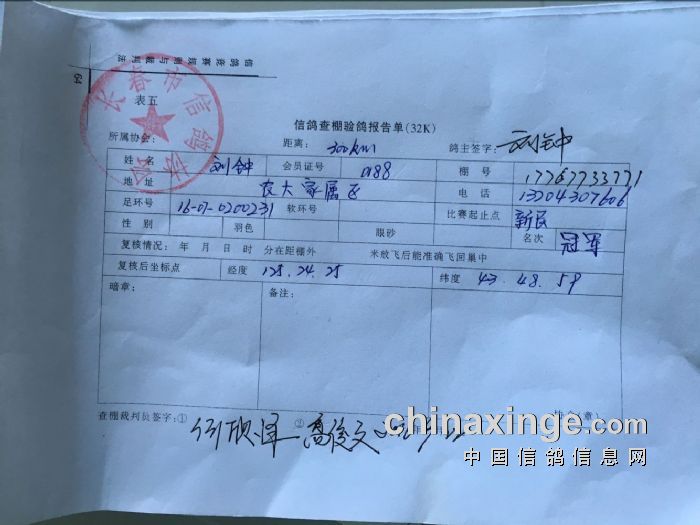 信鸽竞赛规则与裁判法
64
长春市信鸽协会
表五
信鸽查棚验鸽报告单(32K)
所属协会: 距离: 300km 鸽主签字: 刘钟
姓名 刘钟 会员证号 0188 棚号 17767733771
地址 农大家属区 电话 13204307606
足环号 16-07-0200231 软环号 比赛起止点 新民
性别 羽色 眼砂 名次 冠军
复核情况: 年 月 日 时 分在距棚外 米放飞后能准确飞回巢中
复核后坐标点 经度 125.24.25 纬度 43.48.59
暗章: 备注:
查棚裁判员签字:① ② 高俊文
chinaxinge.com
中国信鸽信息网